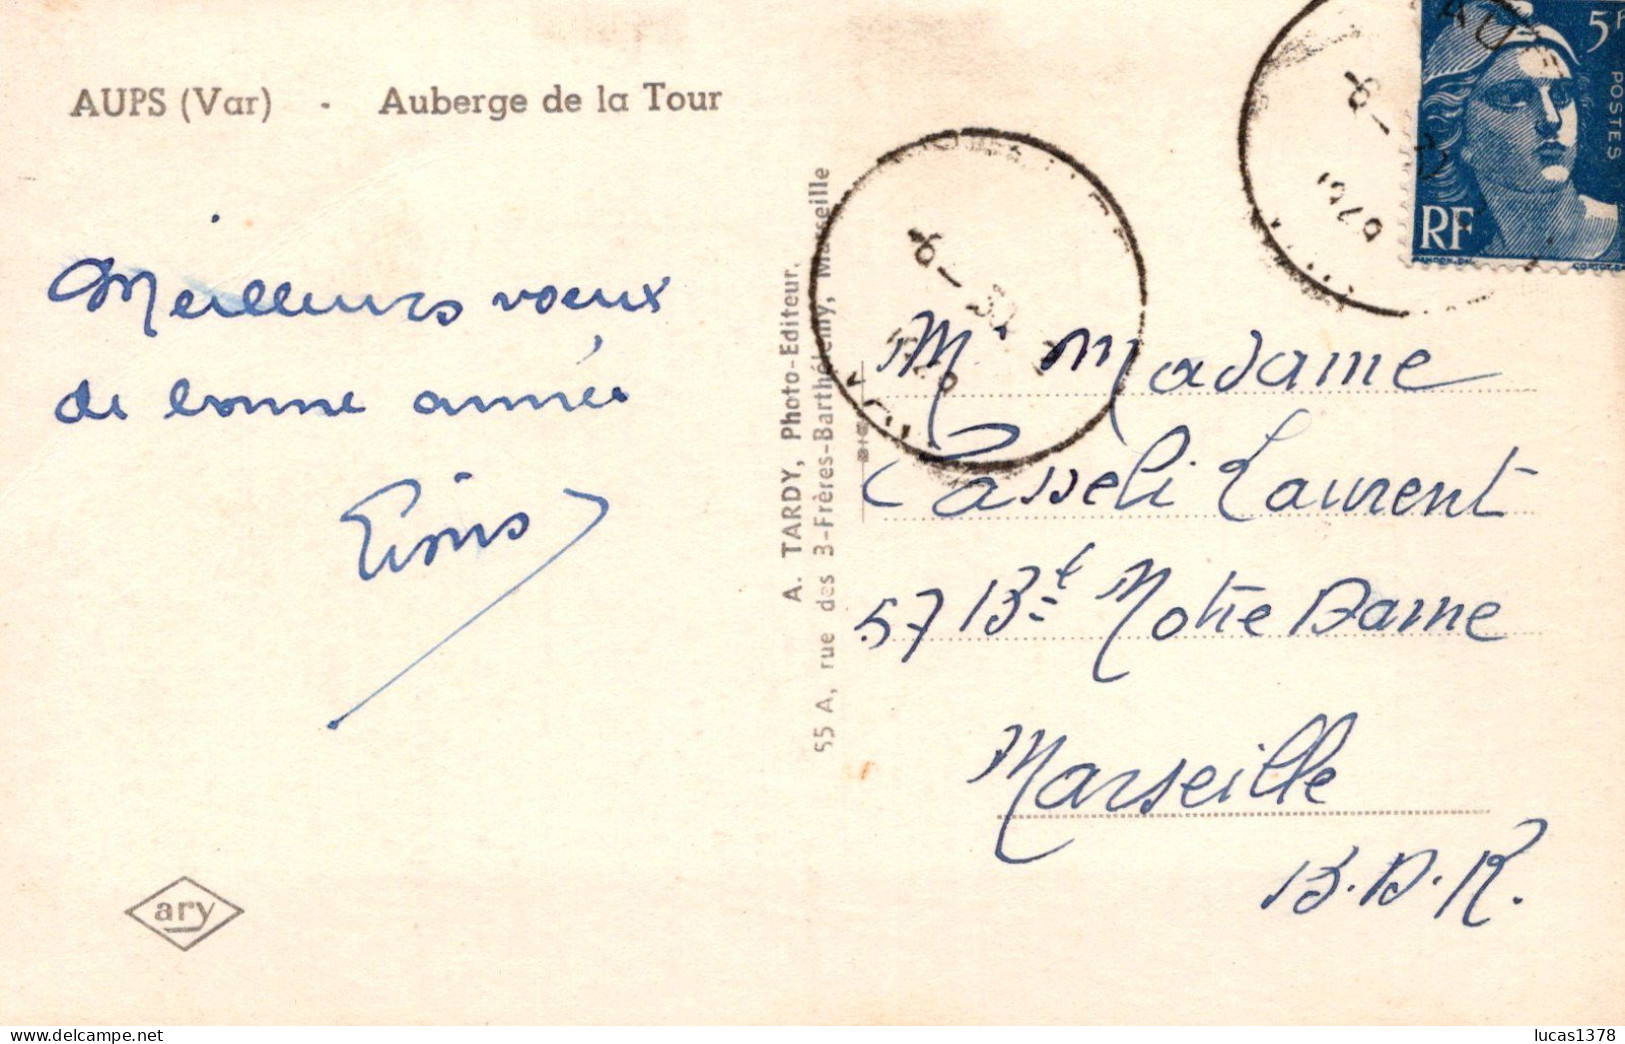 AUPS (Var) - Auberge de la Tour
Meilleurs voeux
de bonne année
A. TARDY, Photo-Editeur.
55 A, rue des 3-Frères-Barthélemy, Marseille
5 F
POSTES
RF
VAR
M. Madame
Casseli Laurent
57 Bt Notre Dame
Marseille
B.D.R.
ary
lucas1378